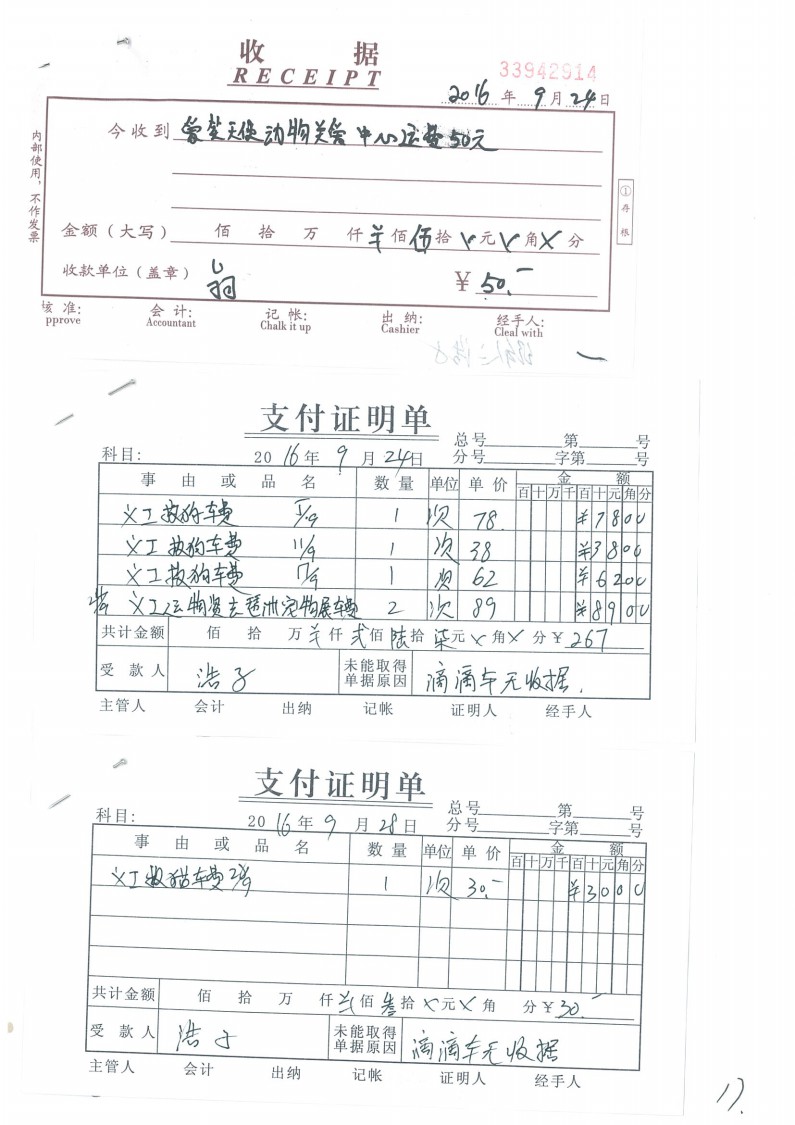 收 据
RECEIPT
33942914
2016 年 9 月 24 日
内部使用，不作发票
今收到 天使动物关爱中心运费50元
① 存根
金额（大写） 佰 拾 万 仟 佰 伍 拾 元 角 分
收款单位（盖章） ￥ 50.-
核 准: 会 计: 记 帐: 出 纳: 经手人:
pprove Accountant Chalk it up Cashier Cleal with
支付证明单
总号 第 号
科目: 2016 年 9 月 24 日 分号 字第 号
事 由 或 品 名 数 量 单位 单 价 金 额
百 十 万 千 百 十 元 角 分
义工救狗车费 1 次 78. ¥7800
义工救狗车费 11/9 1 次 38 ¥3800
义工救狗车费 17/9 1 次 62 ¥6200
义工运物资去琶洲宠物展车费 2 次 89 ¥8900
共计金额 佰 拾 万 仟 贰 佰 陆 拾 柒 元 角 分 ￥ 267
受 款 人 浩子 未能取得单据原因 滴滴车无收据.
主管人 会计 出纳 记帐 证明人 经手人
支付证明单
总号 第 号
科目: 2016 年 9 月 28 日 分号 字第 号
事 由 或 品 名 数 量 单位 单 价 金 额
百 十 万 千 百 十 元 角 分
义工救猫车费 1 次 30.- ¥3000
共计金额 佰 拾 万 仟 佰 叁 拾 元 角 分 ￥ 30.-
受 款 人 浩子 未能取得单据原因 滴滴车无收据
主管人 会计 出纳 记帐 证明人 经手人
17.